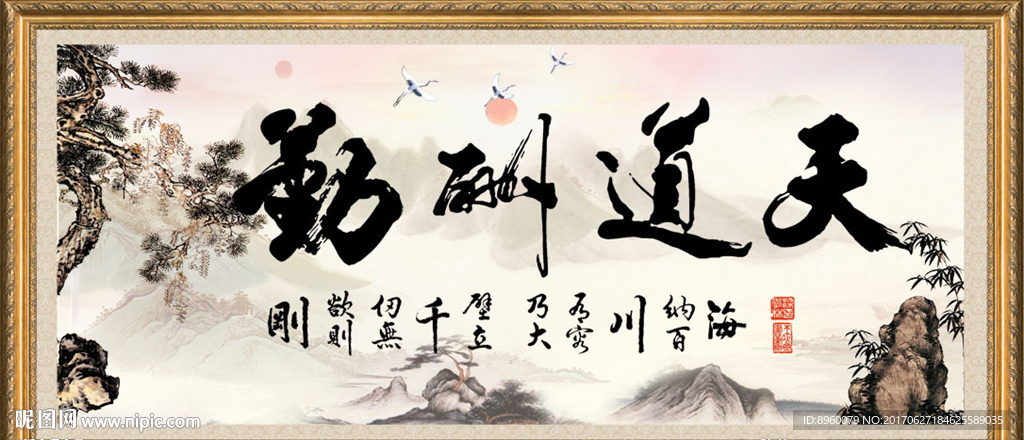 天道酬勤
海納百川有容乃大壁立千仞無欲則剛
昵图网 www.nipic.com
ID:8960079 NO:20170627184625589035